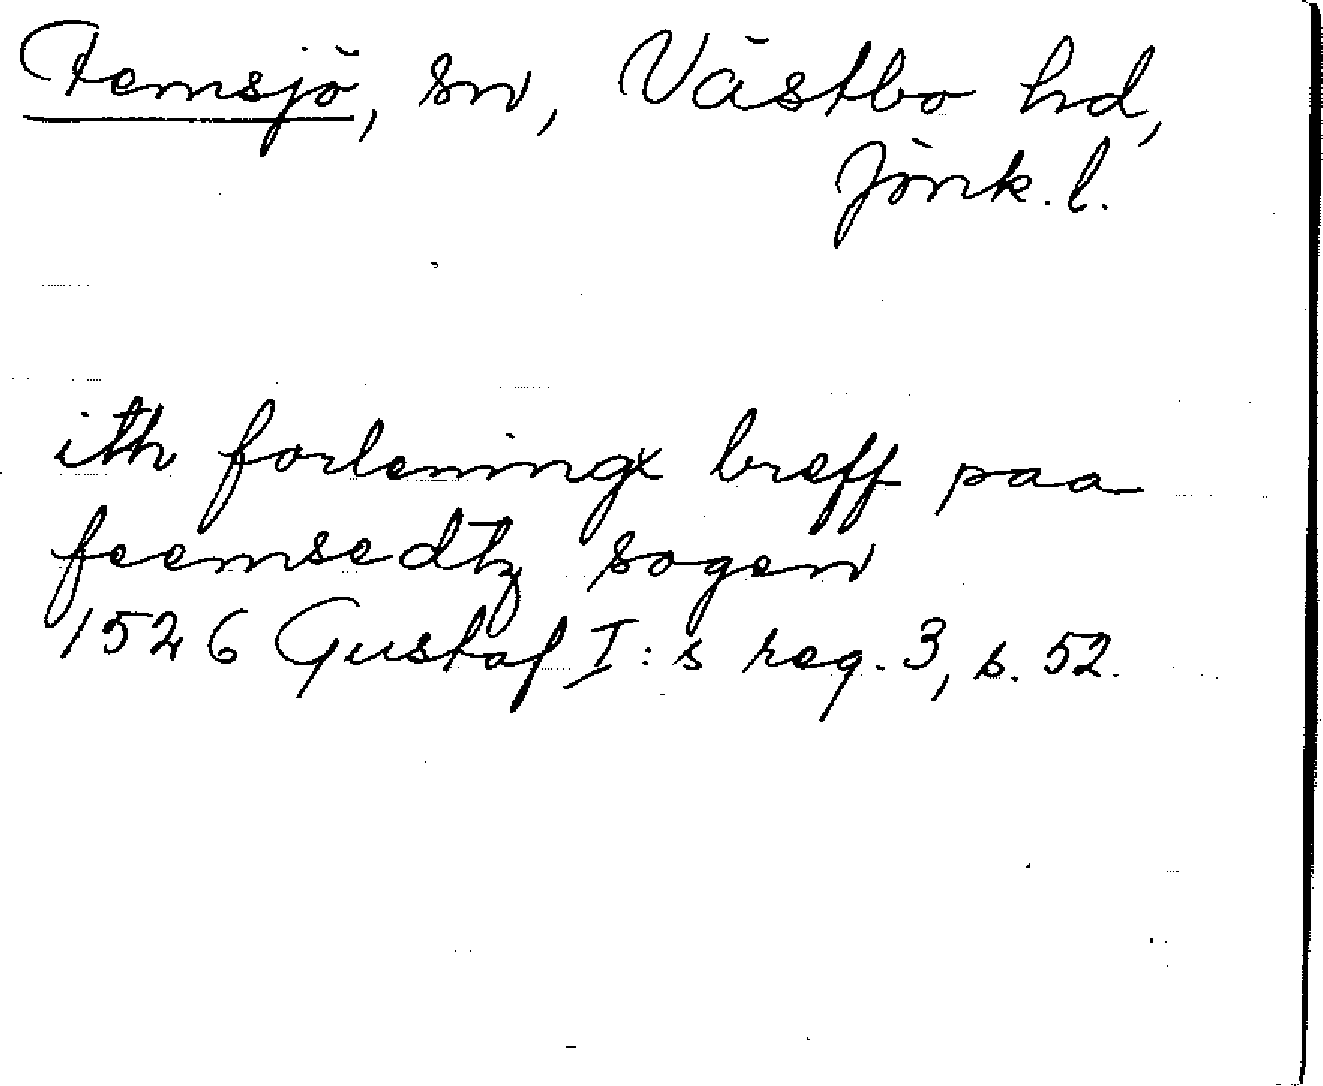 Femsjö, sn, Västbo hd,
Jönk. l.
ith forleningx breff paa
feemsedtz sogen
1526 Gustaf I:s reg. 3, s. 52.